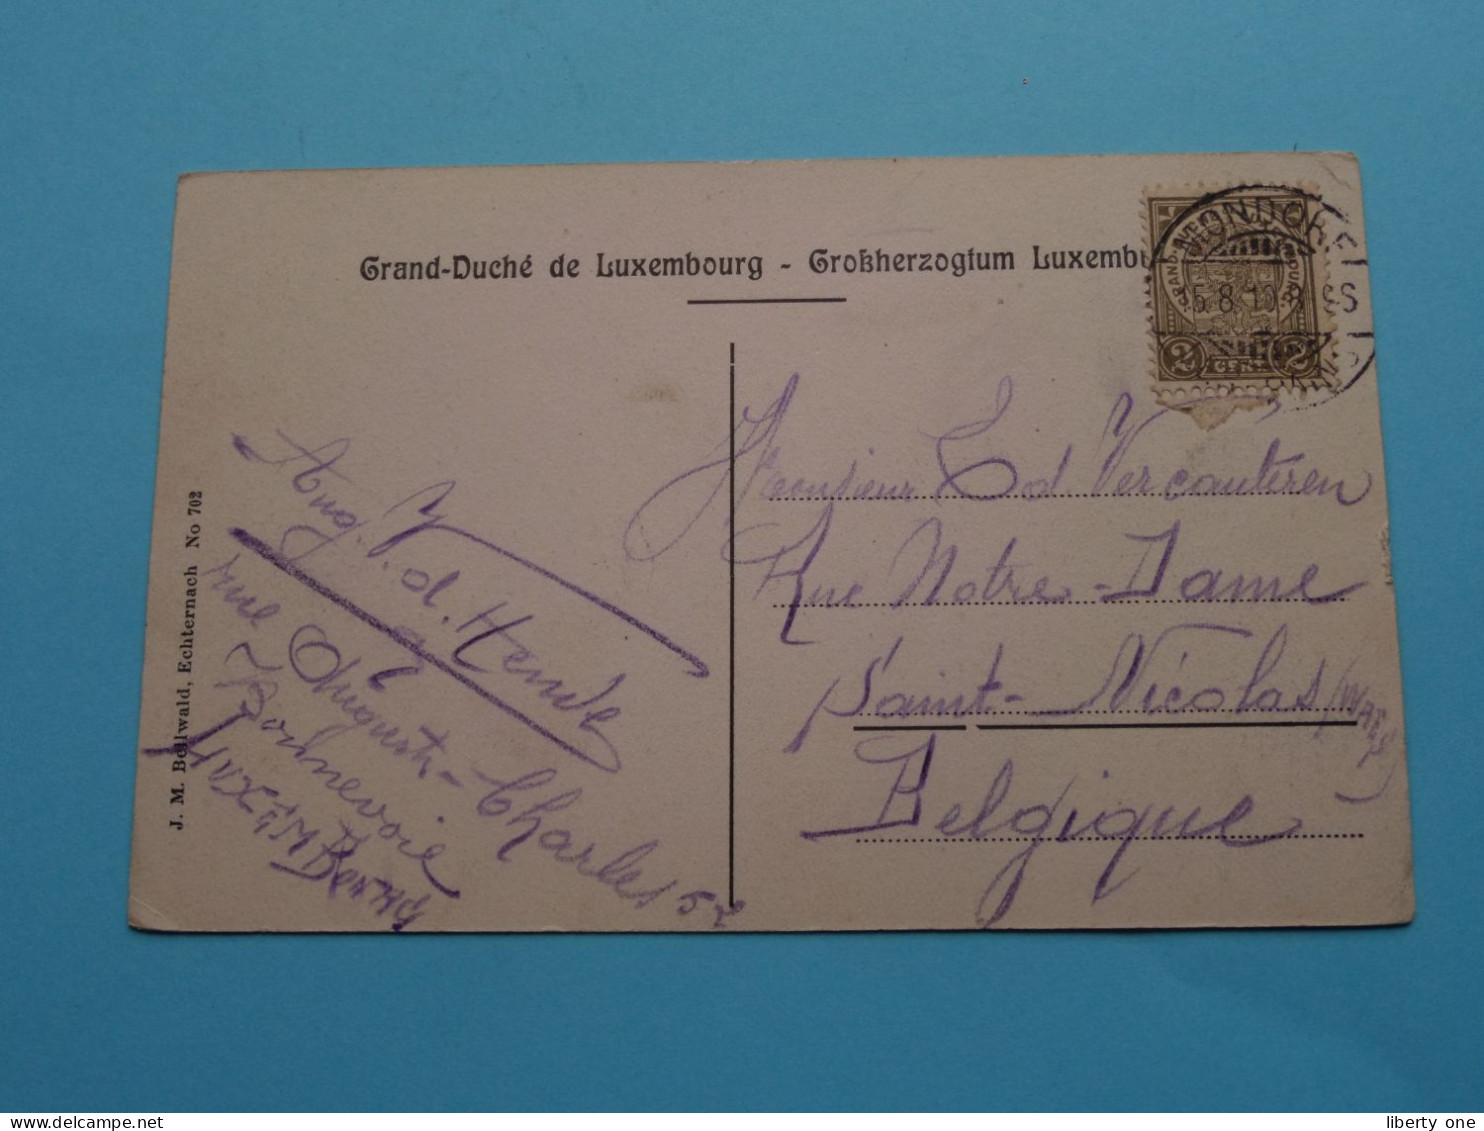 Grand-Duché de Luxembourg - Großherzogtum Luxembu
MONDORF
5.8.10 8
BAINS
2 CENT 2
J. M. Bellwald, Echternach No 702
Aug. d. Hende
rue Auguste-Charles 52
Bonnevoie
LUXEMBOURG
Monsieur Ed Vercauteren
Rue Notre-Dame
Saint-Nicolas (WAES)
Belgique
liberty one
delcampe.net